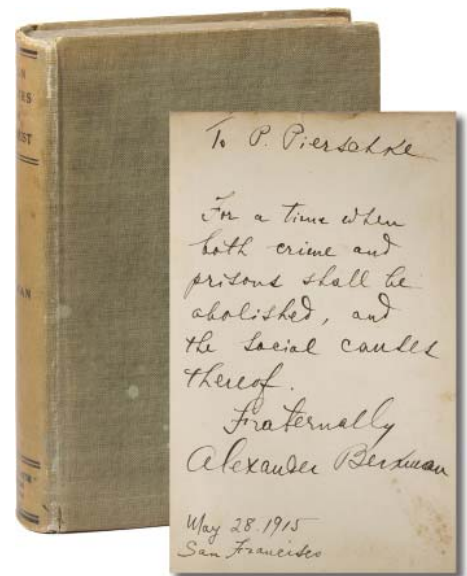 To P. Pierschke
For a time when
both crime and
prisons shall be
abolished, and
the social causes
thereof.
Fraternally
Alexander Berkman
May 28.1915
San Francisco